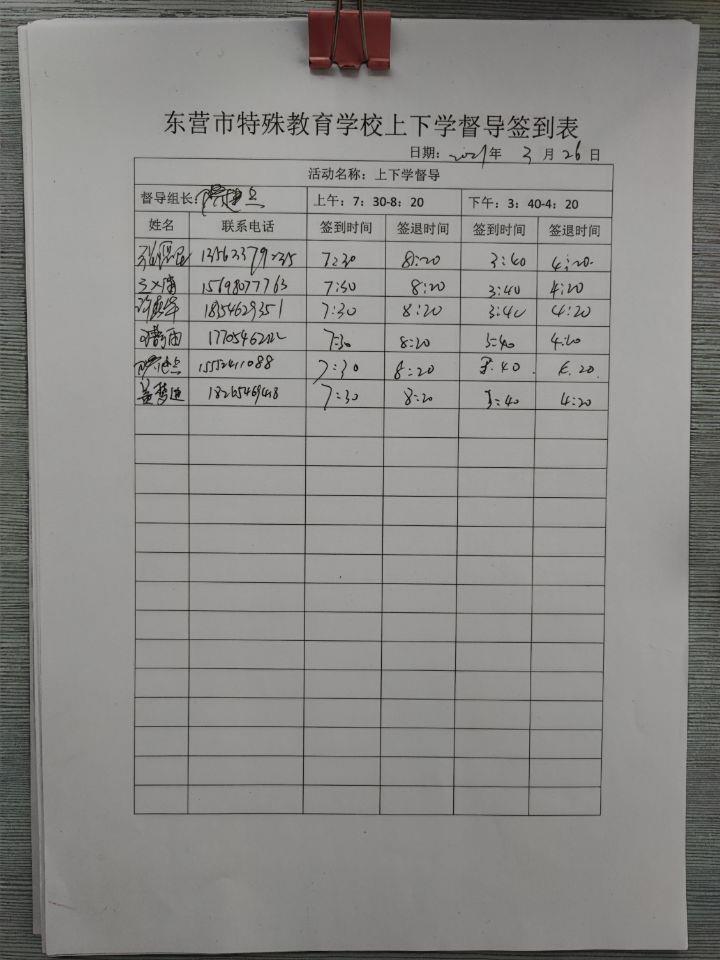 东营市特殊教育学校上下学督导签到表
日期：2021年 3 月 26 日
活动名称：上下学督导
督导组长： 上午：7：30-8：20 下午：3：40-4：20
姓名 联系电话 签到时间 签退时间 签到时间 签退时间
7:30 8:20 3:40 4:20
15698077763 7:30 8:20 3:40 4:20
18154629351 7:30 8:20 3:40 4:20
7:30 8:20 3:40 4:20
15552411088 7:30 8:20 3.40 4.20
盖梦迪 18265469418 7:30 8:20 3:40 4:20